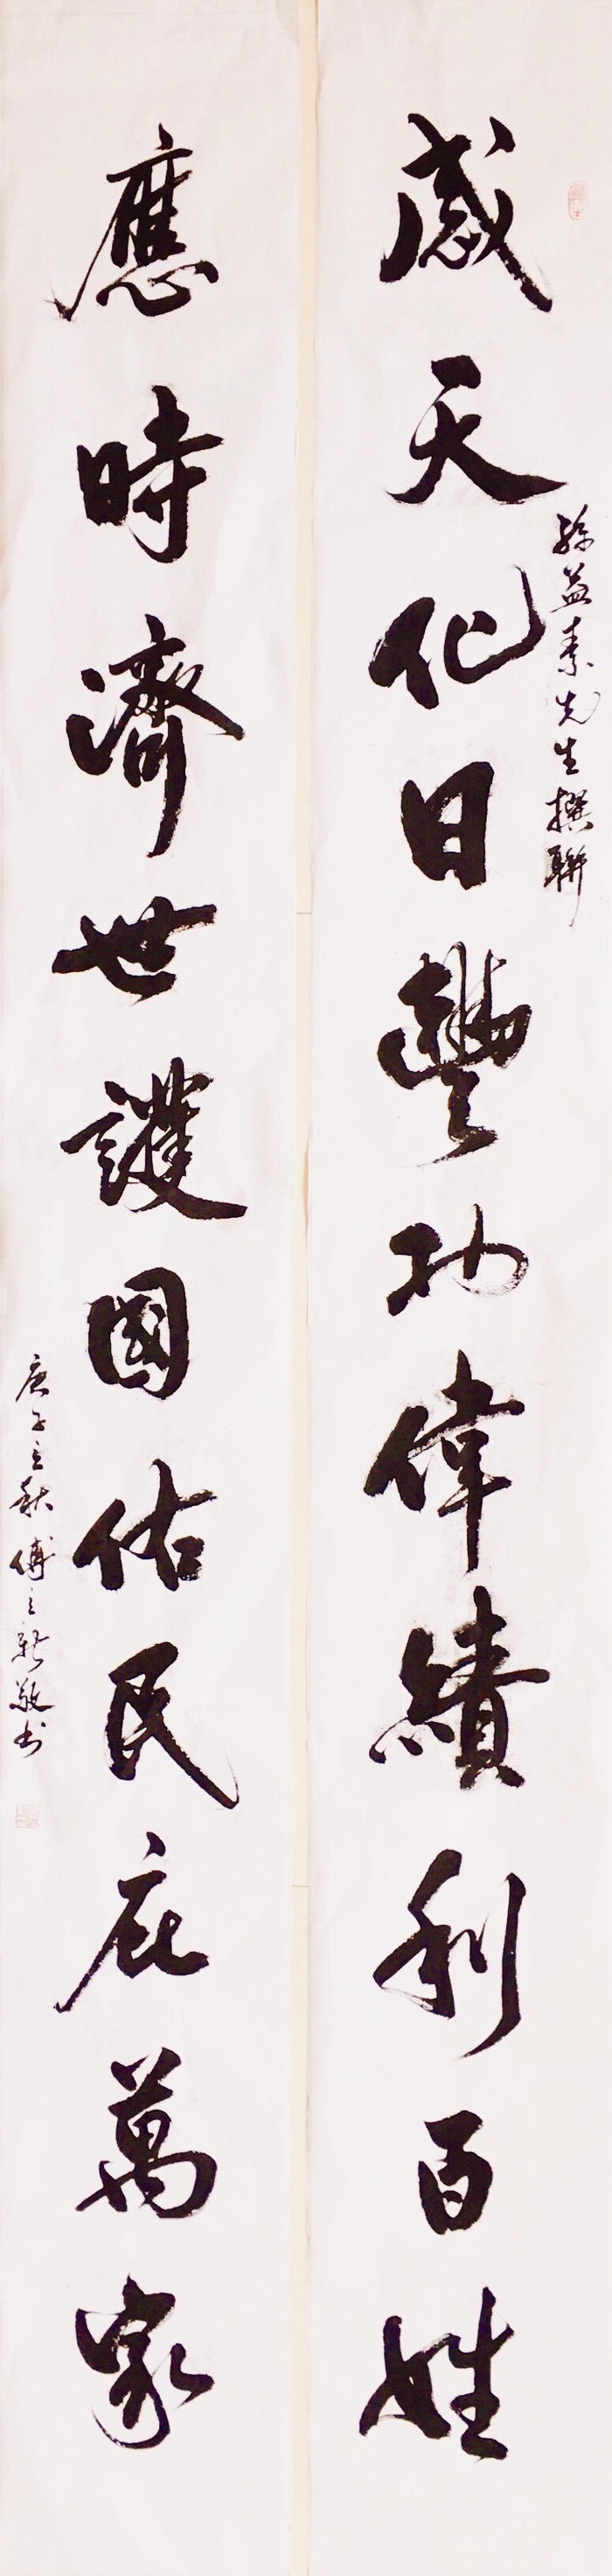 感天化日豐功偉績利百姓
孫益素先生撰聯
應時濟世護國佑民庇萬家
庚子立秋傅之新敬書